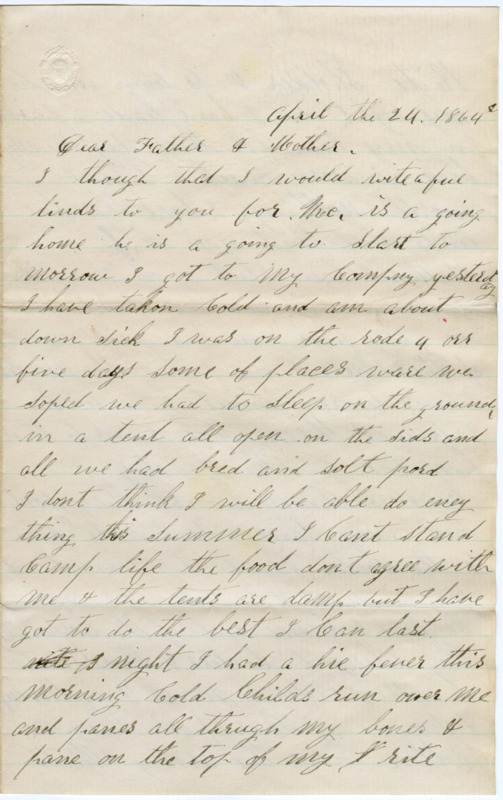 April the 24. 1864
Dear Father & Mother.
I though that I would wite a fue
linds to you for Mc. is a going
home he is a going to start to
morrow I got to my Compny yesterday
I have taken Cold and am about
down sick I was on the rode 4 orr
five days some of places ware we
soped we had to sleep on the ground,
in a tent all open on the sids and
all we had bred and solt pord
I dont think I will be able do eney
thing this summer I Cant stand
Camp life the food don't agree with
me & the tents are damp but I have
got to do the best I Can last
night I had a hie fever this
morning Cold Childs run over me
and panes all through my bones &
pane on the top of my I rite